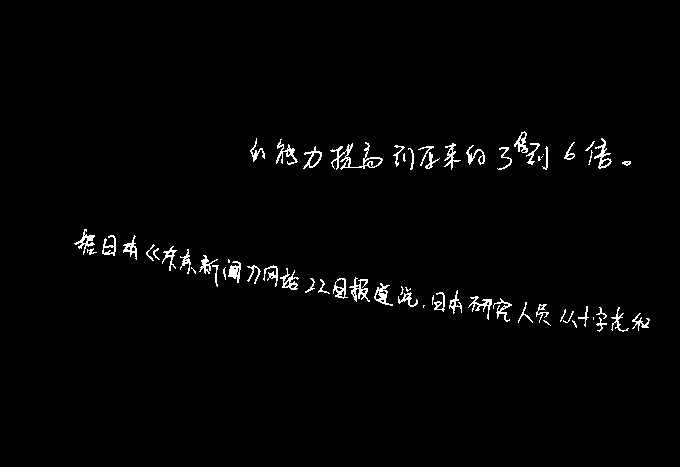 的能力提高到原来的3倍到6倍。
据日本《东京新闻》网站22日报道说,日本研究人员从十字花和